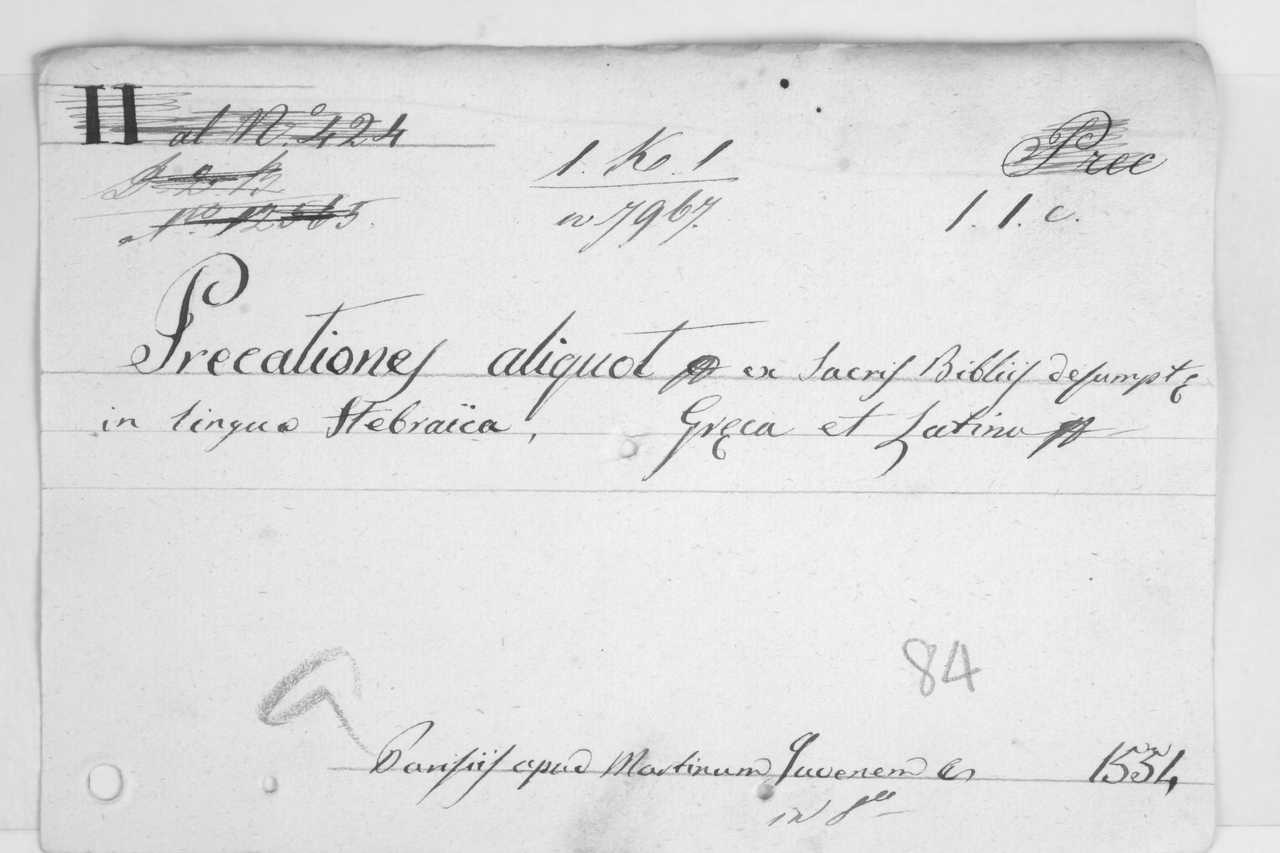 II al No. 424
1. K. 1
Prec
J. 2. K
No. 12565.
n 7967.
1. 1. c.
Precationes aliquot ex Sacris Bibliis desumptę
in lingua Hebraïca, Gręca et Latina
84
Parisiis apud Martinum Juvenem 1554
in 8vo